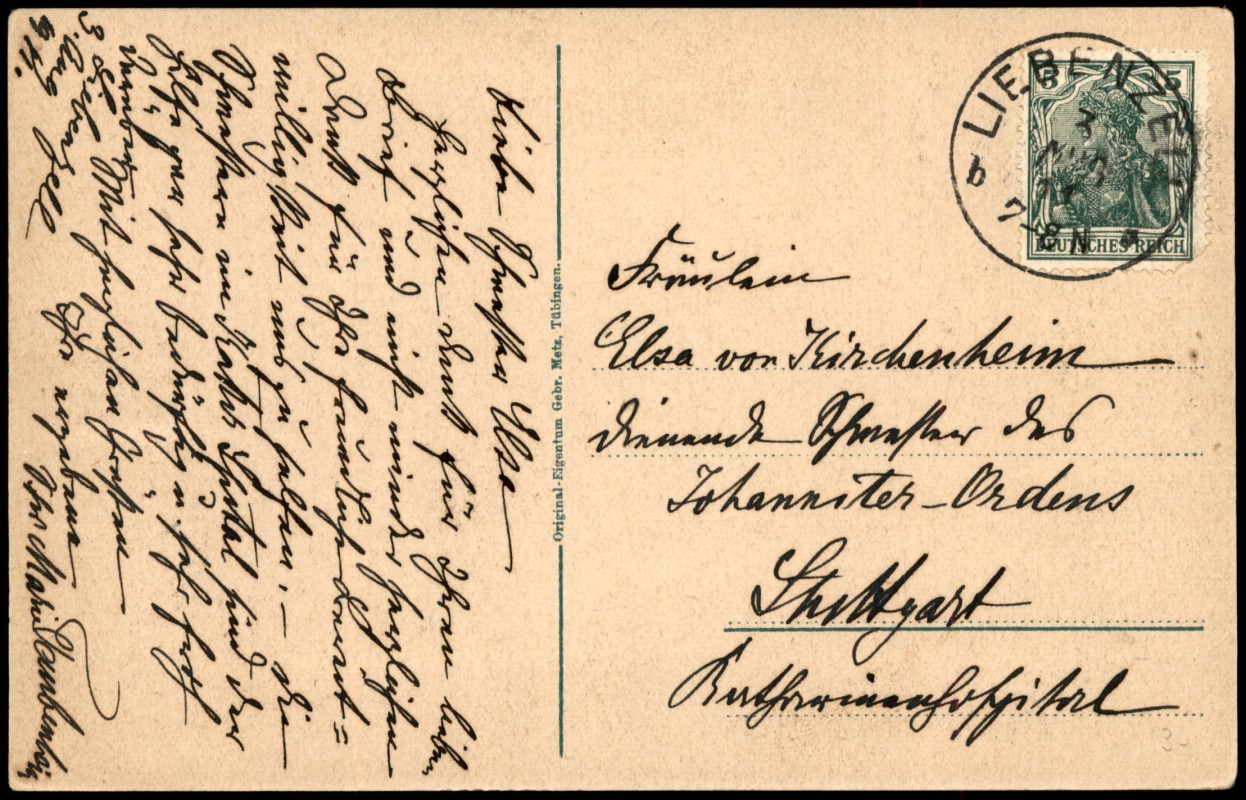 Liebe Schwester Elsa
herzlichen Dank für Ihren lieben
Brief, und nicht minder herzlichen
Dank für Ihre freundliche Bereit=
willigkeit uns zu helfen. – Die
Schwestern im Spital sind der
Hilfe sehr bedürftig u. sehr froh
Mit herzlichen Grüßen
Ihre ergebene
Liebenzell
3
Original-Eigentum Gebr. Metz, Tübingen.
LIEBENZELL
3
b
7-8N
5
DEUTSCHES REICH
Fräulein
Elsa von Kirchenheim
dienende Schwester des
Johanniter-Ordens
Stuttgart
Katharinenhospital